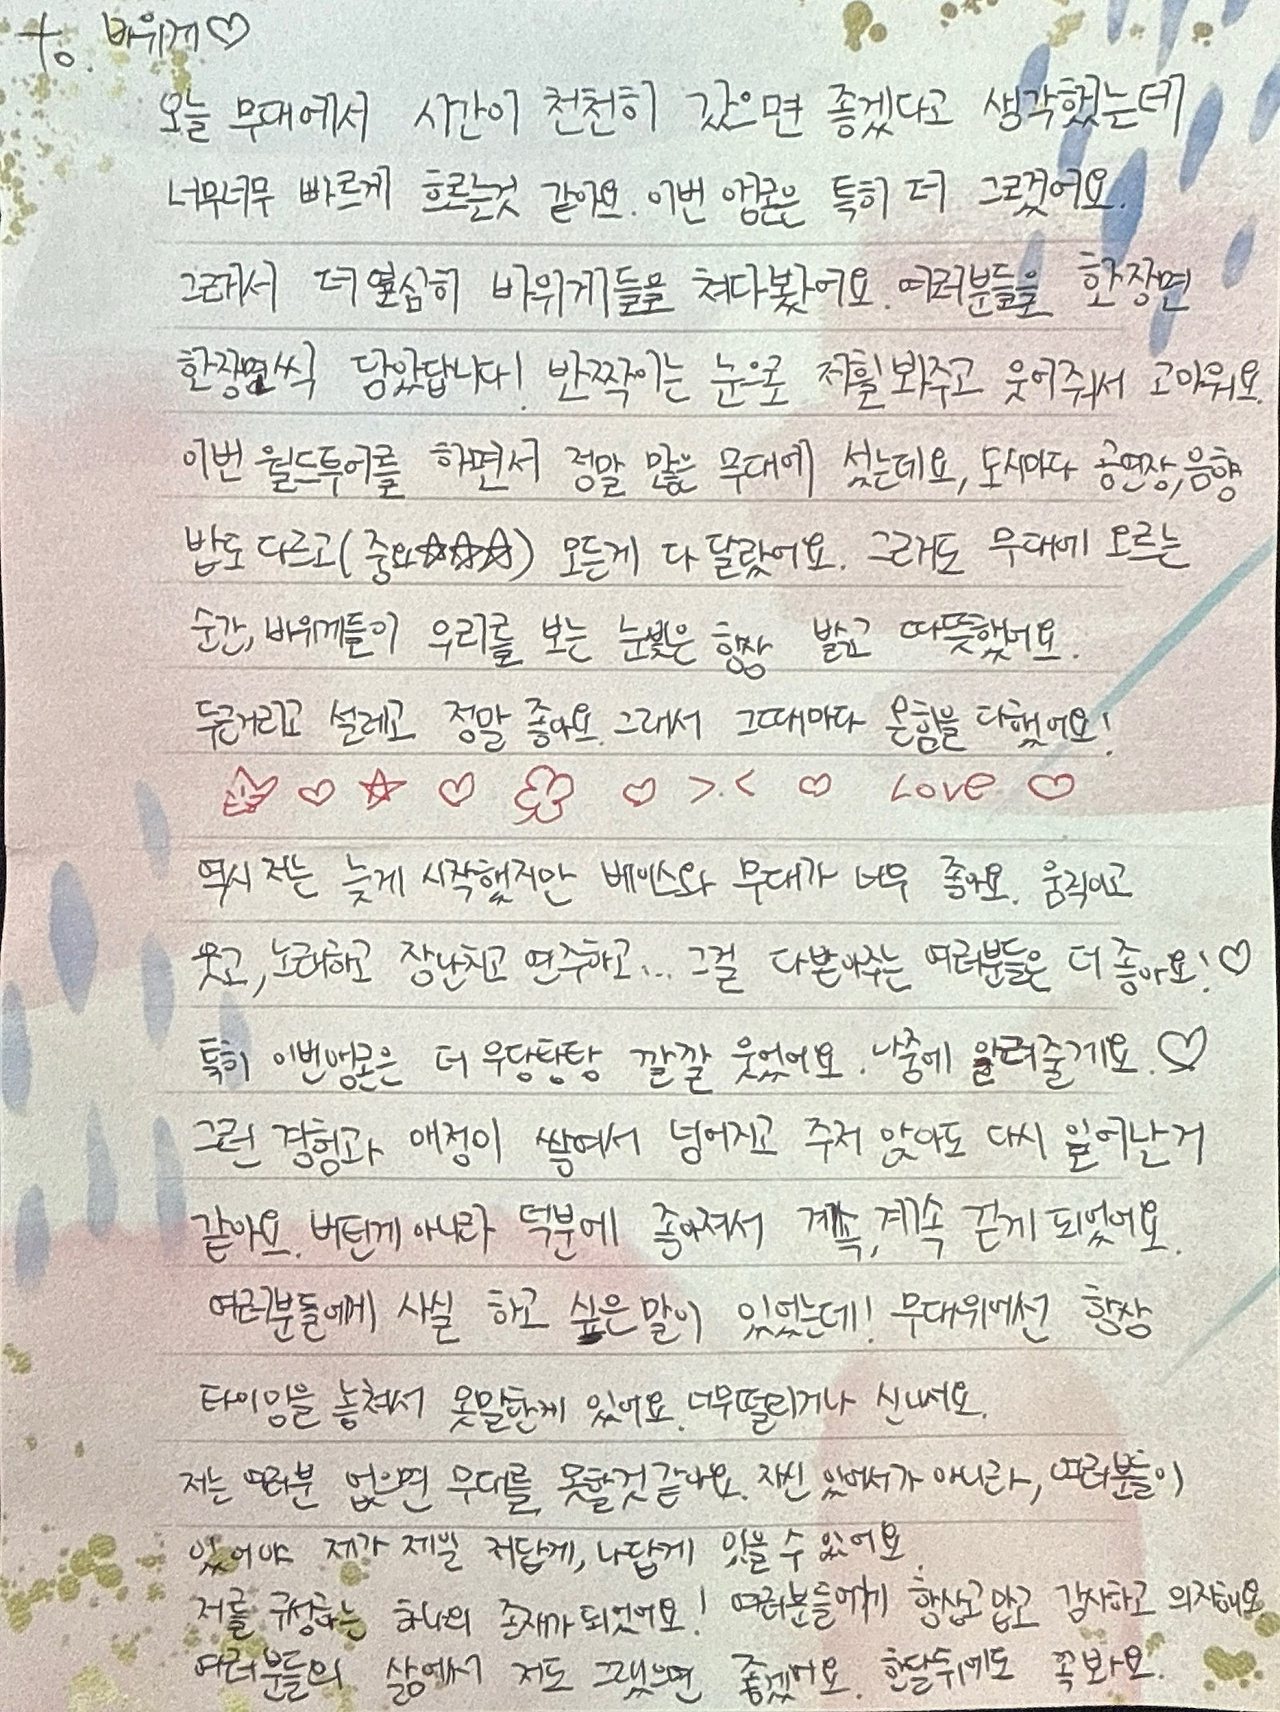 to. 바위게♡
오늘 무대에서 시간이 천천히 갔으면 좋겠다고 생각했는데
너무너무 빠르게 흐르는것 같아요. 이번 앵콘은 특히 더 그랬어요.
그래서 더 열심히 바위게들을 쳐다봤어요. 여러분들을 한장면
한장면씩 담았답니다! 반짝이는 눈으로 저흴 봐주고 웃어줘서 고마워요.
이번 월드투어를 하면서 정말 많은 무대에 섰는데요, 도시마다 공연장, 음향
밥도 다르고(중요☆☆☆) 모든게 다 달랐어요. 그래도 무대에 오르는
순간, 바위게들이 우리를 보는 눈빛은 항상 밝고 따뜻했어요.
두근거리고 설레고 정말 좋아요. 그래서 그때마다 온힘을 다했어요!
♡ ☆ ♡ ♡ >.< ♡ Love ♡
역시 저는 늦게 시작했지만 베이스와 무대가 너무 좋아요. 움직이고
웃고, 노래하고 장난치고 연주하고... 그걸 다받아주는 여러분들은 더 좋아요! ♡
특히 이번앵콘은 더 우당탕탕 깔깔 웃었어요. 나중에 알려줄게요. ♡
그런 경험과 애정이 쌓여서 넘어지고 주저 앉아도 다시 일어난거
같아요. 버틴게 아니라 덕분에 좋아져서 계속, 계속 걷게 되었어요.
여러분들에게 사실 하고 싶은말이 있었는데! 무대위에선 항상
타이밍을 놓쳐서 못말한게 있어요. 너무떨리거나 신나서요.
저는 여러분 없으면 무대를 못할것같아요. 자신 있어서가 아니라, 여러분들이
있어야 제가 제일 저답게, 나답게 있을 수 있어요.
저를 구성하는 하나의 존재가 되었어요! 여러분들에게 항상고맙고 감사하고 의지해요
여러분들의 삶에서 저도 그랬으면 좋겠어요. 한달뒤에도 꼭봐요.